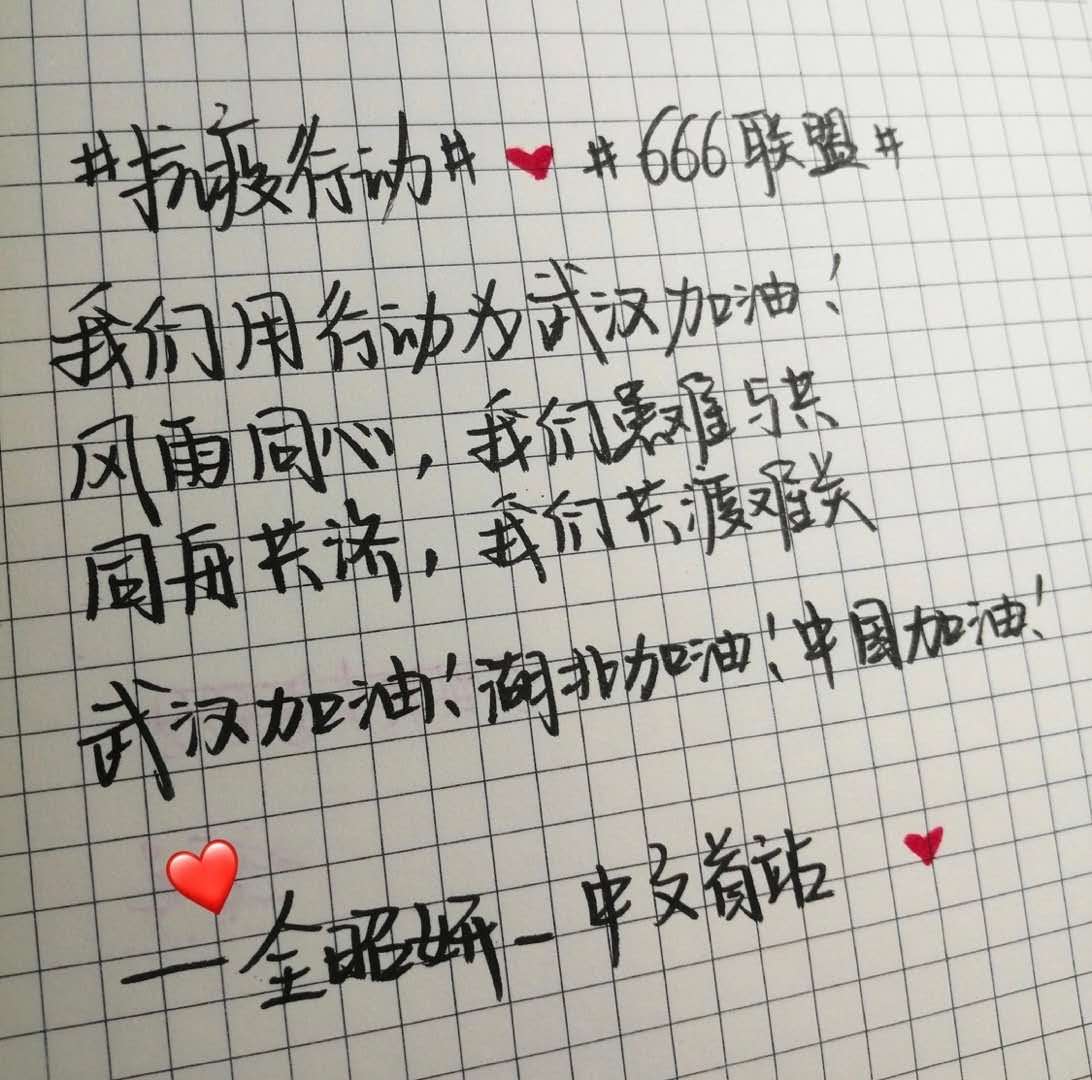 #抗疫行动# ❤ #666联盟#
我们用行动为武汉加油！
风雨同心，我们患难与共
同舟共济，我们共渡难关
武汉加油！湖北加油！中国加油！
❤ ❤
——全昭妍_中文首站